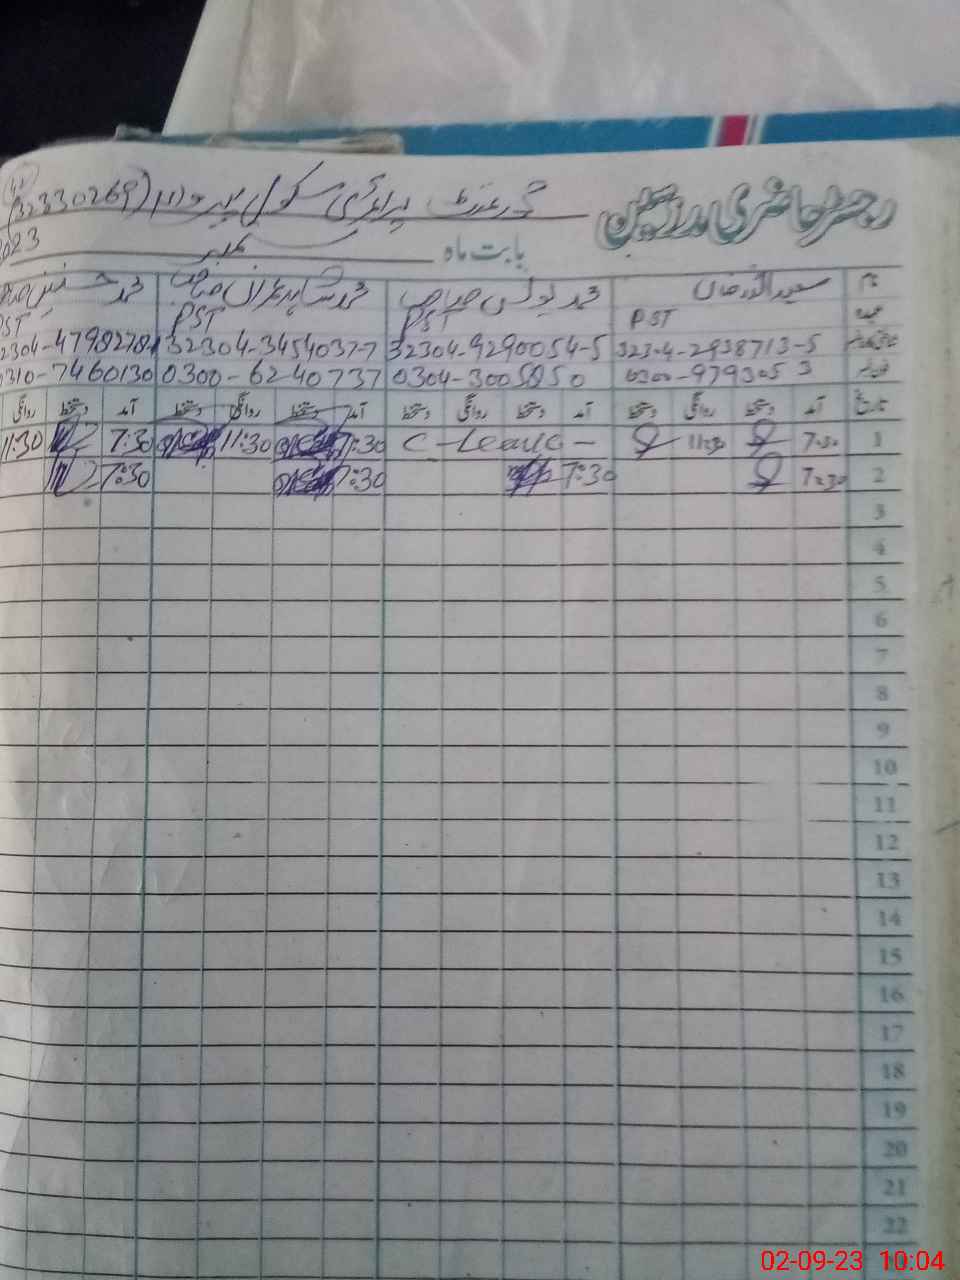 رجسٹر حاضری مدرسین گورنمنٹ پرائمری سکول (32330269)
بابت ماه ستمبر 2023
نام سعید انور خان محمد یونس صاحب محمد شاہد عمران صاحب محمد حسنین
عہدہ PST PST PST PST
32304-2938713-5 32304-9290054-5 32304-3454037-7 2304-4798278
فون نمبر 0300-9793053 0304-3005850 0300-6240737 0310-7460130
تاریخ آمد دستخط روانگی دستخط آمد دستخط روانگی دستخط آمد دستخط روانگی دستخط آمد دستخط روانگی
1 7:30 11:30 C-Leave- 7:30 11:30 7:30 11:30
2 7:30 7:30 7:30 7:30
3
4
5
6
7
8
9
10
11
12
13
14
15
16
17
18
19
20
21
22
02-09-23 10:04